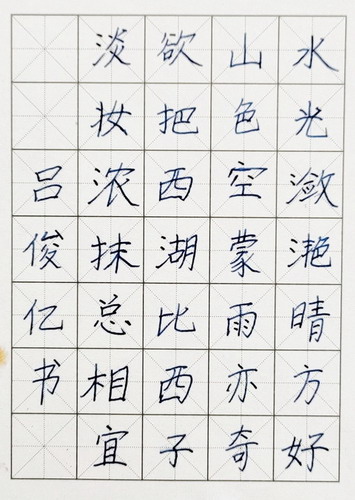 水光潋滟晴方好
山色空蒙雨亦奇
欲把西湖比西子
淡妆浓抹总相宜
吕俊亿书